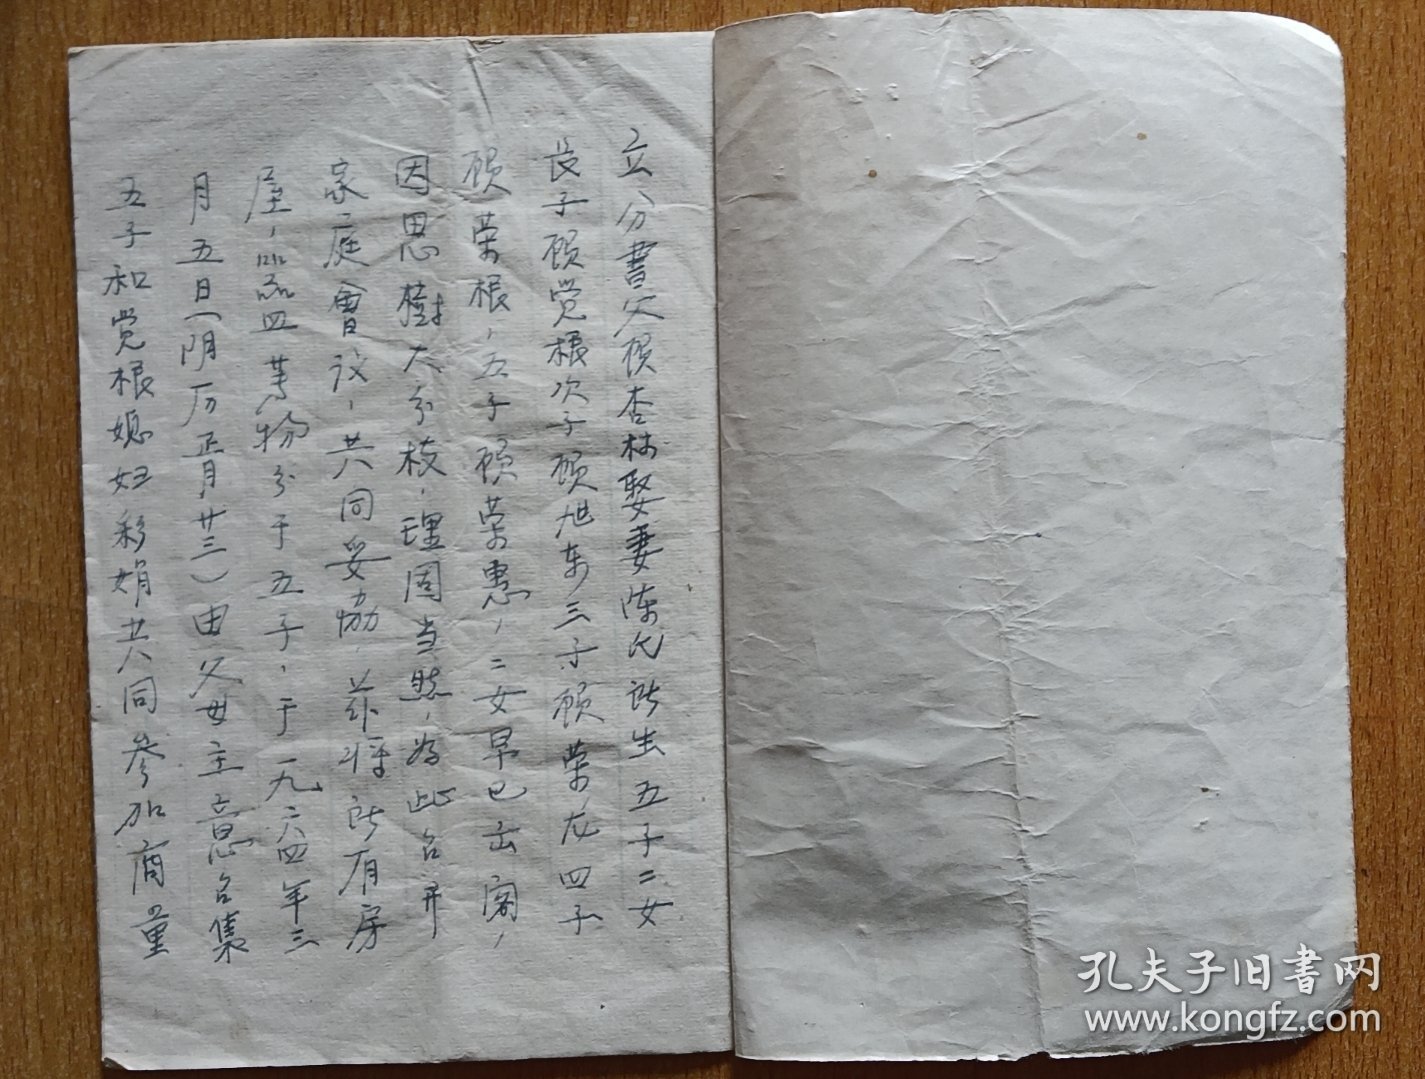 立分書父顾杏林娶妻陈氏所生五子二女
長子顾觉根次子顾旭东三子顾荣龙四子
顾荣根，五子顾荣惠，二女早已出阁，
因思樹大分枝，理固当然，为此召开
家庭會议，共同妥協，兹将所有房
屋，器皿等物分于五子，于一九六四年三
月五日（阴历正月廿三）由父母主意召集
五子和觉根媳妇彩娟共同参加商量
孔夫子旧書网
www.kongfz.com